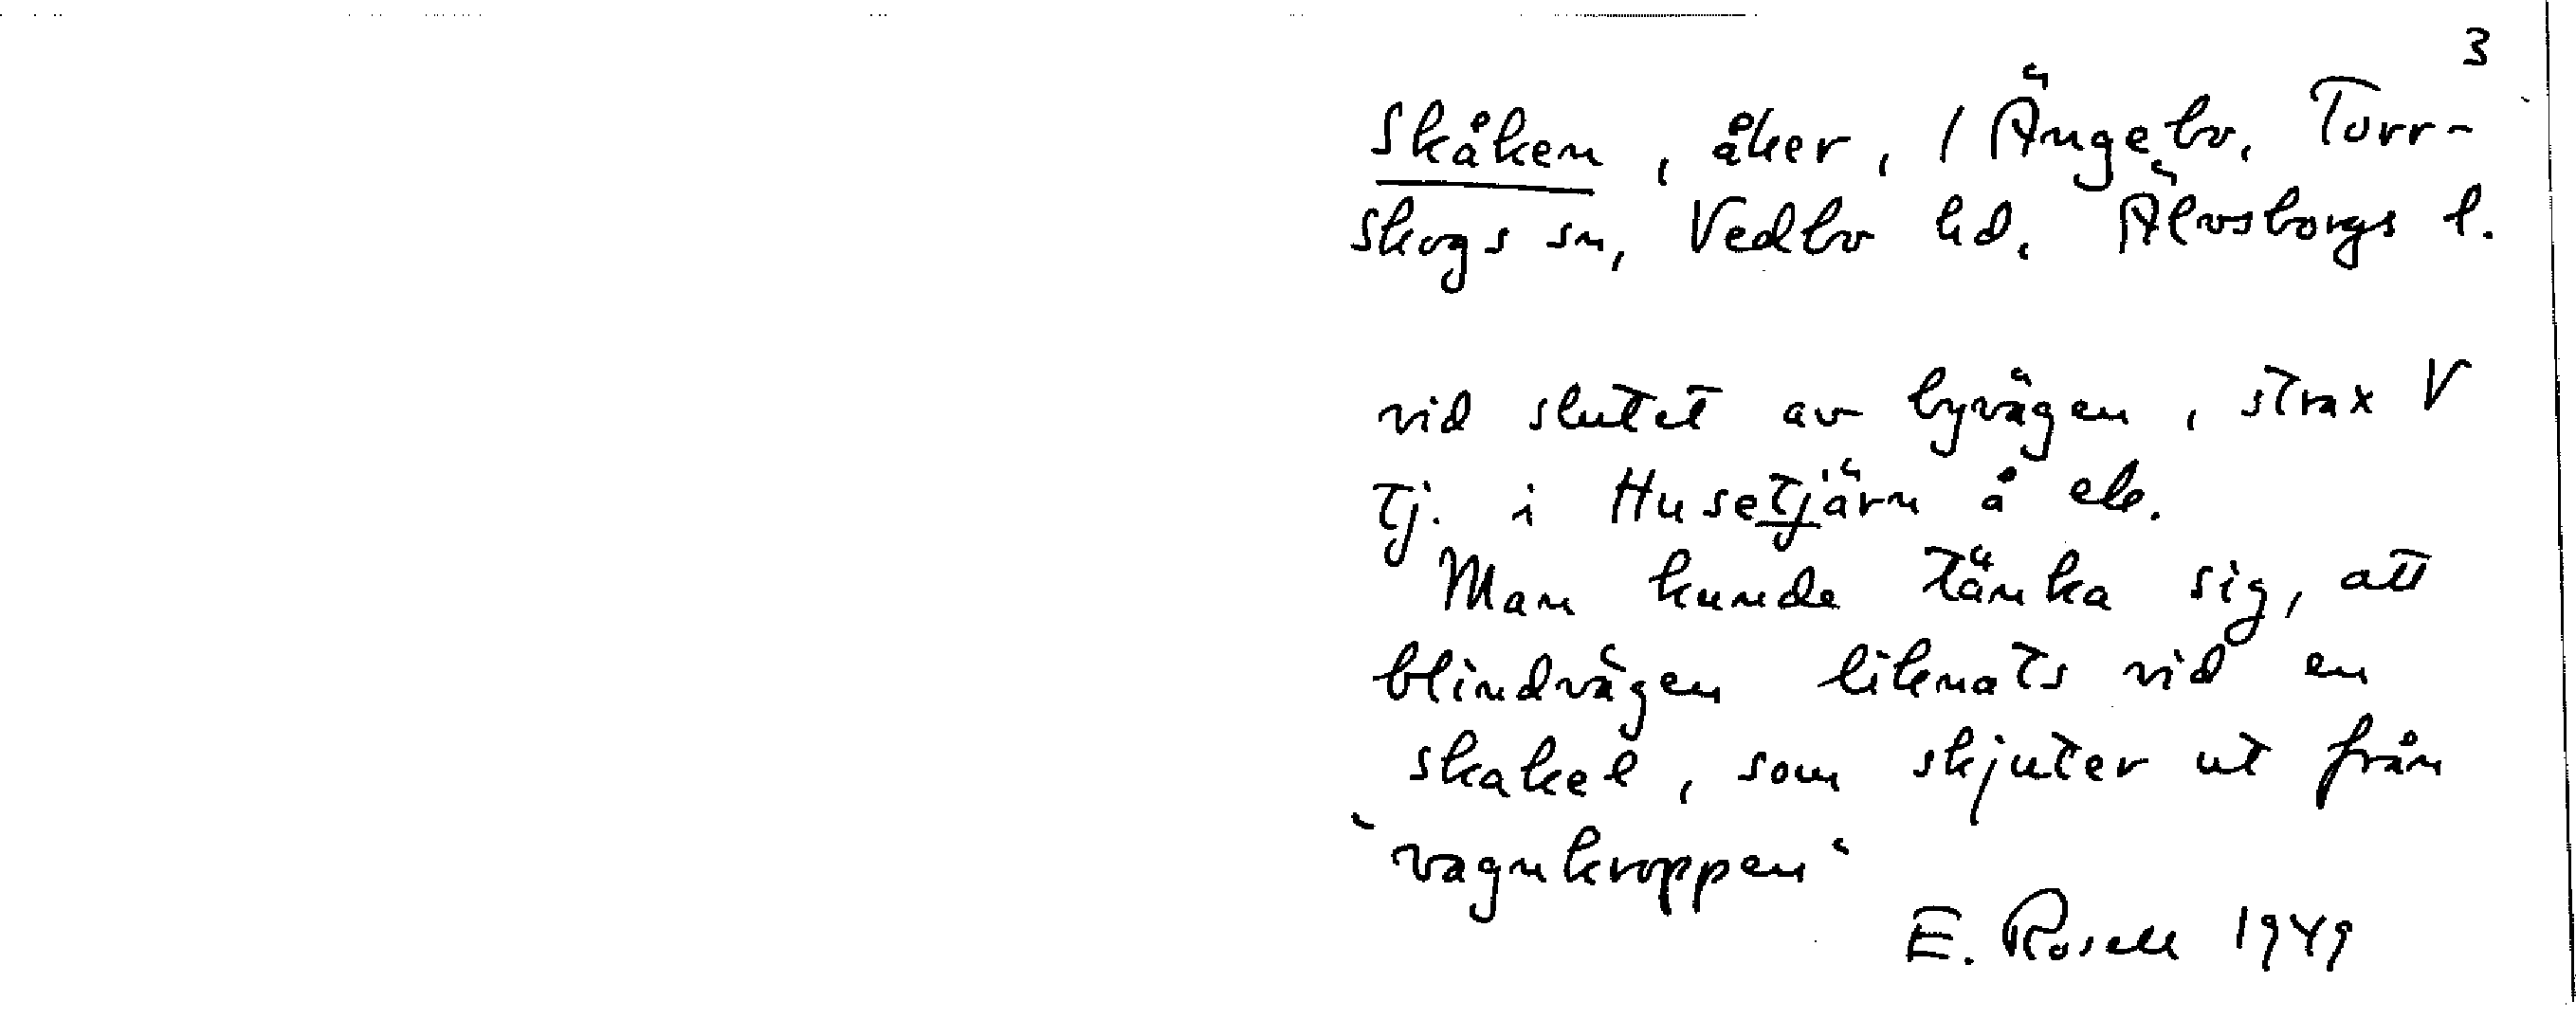 3
Skåken, åker, 1 Ängebo, Torr-
skogs sn, Vedbo hd, Älvsborgs l.
vid slutet av byvägen, strax V
tj. i Husetjärn å ek.
Man kunde tänka sig, att
blindvägen liknats vid en
skakel, som skjuter ut från
"vagnkroppen"
E. Rosell 1949